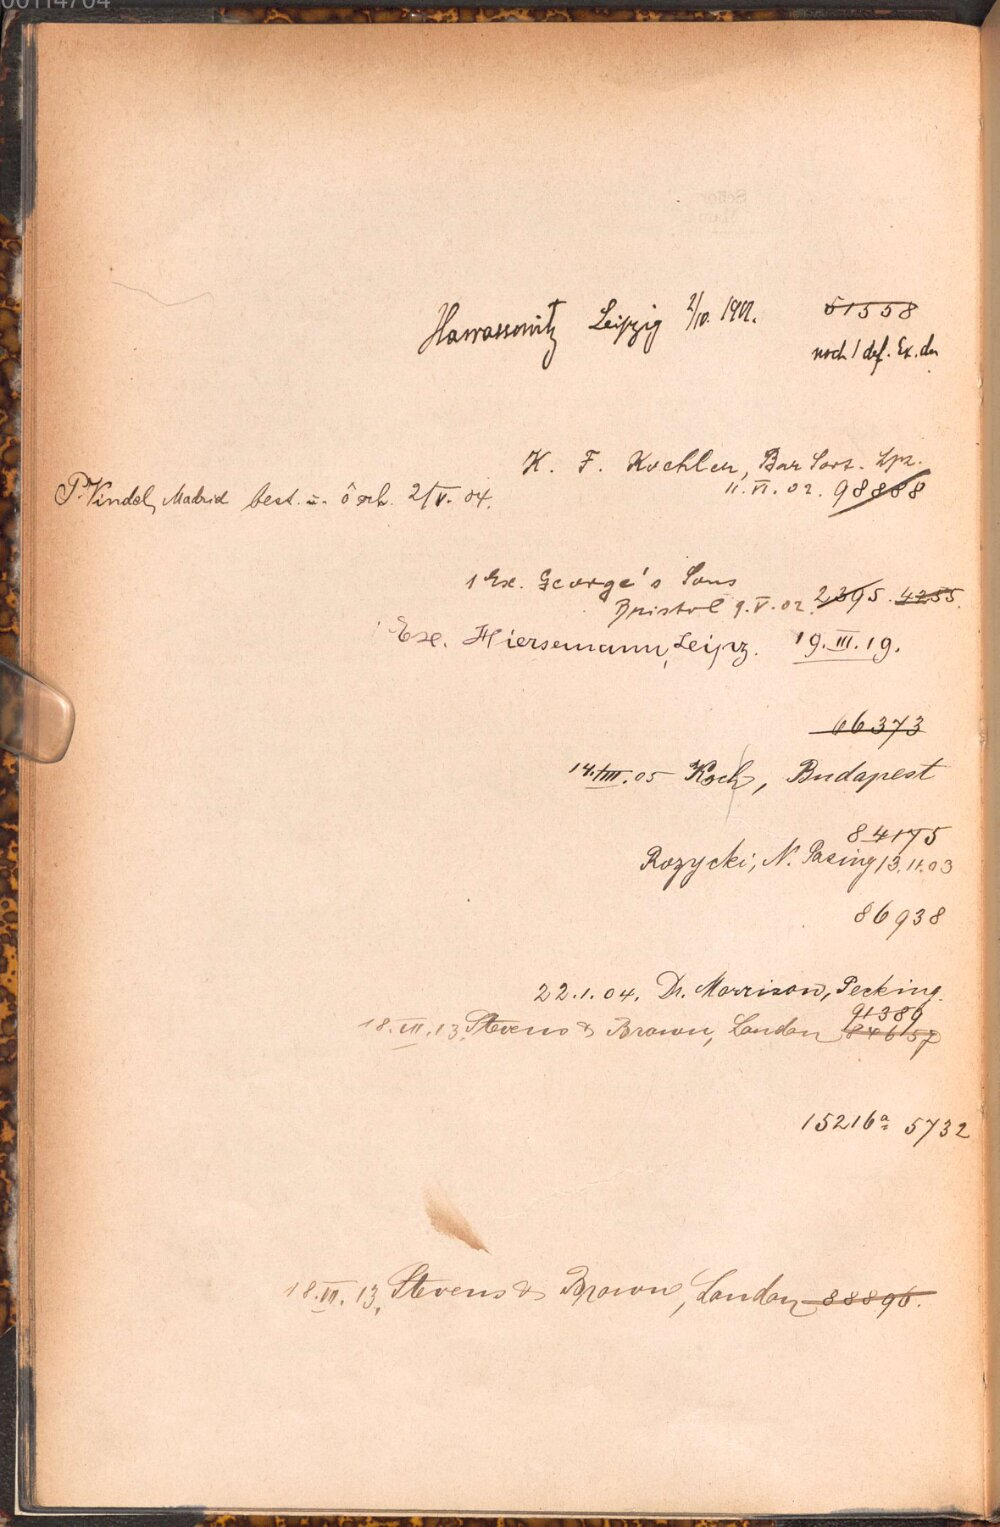 00114704
Harrassowitz Leipzig 2/10. 1902. 51558
noch 1 def. Ex. da
K. F. Koehler, Bar Sort. Lpz.
11. VI. 02. 98888
P. Vindel, Madrid best. u. 2/V. 04.
1 Ex. George's Sons
Bristol 9. V. 02. 2395. 4255.
1 Ex. Hiersemann, Leipz. 19. III. 19.
66373
14. III. 05 Koch, Budapest
84175
Rozycki, N. Pasing 13. 11. 03
86938
22. 1. 04. Dr. Morrison, Pecking.
91386
18. VII. 13. Stevens & Brown, London 84657
15216a 5732
18. VII. 13, Stevens & Brown, London 88896.